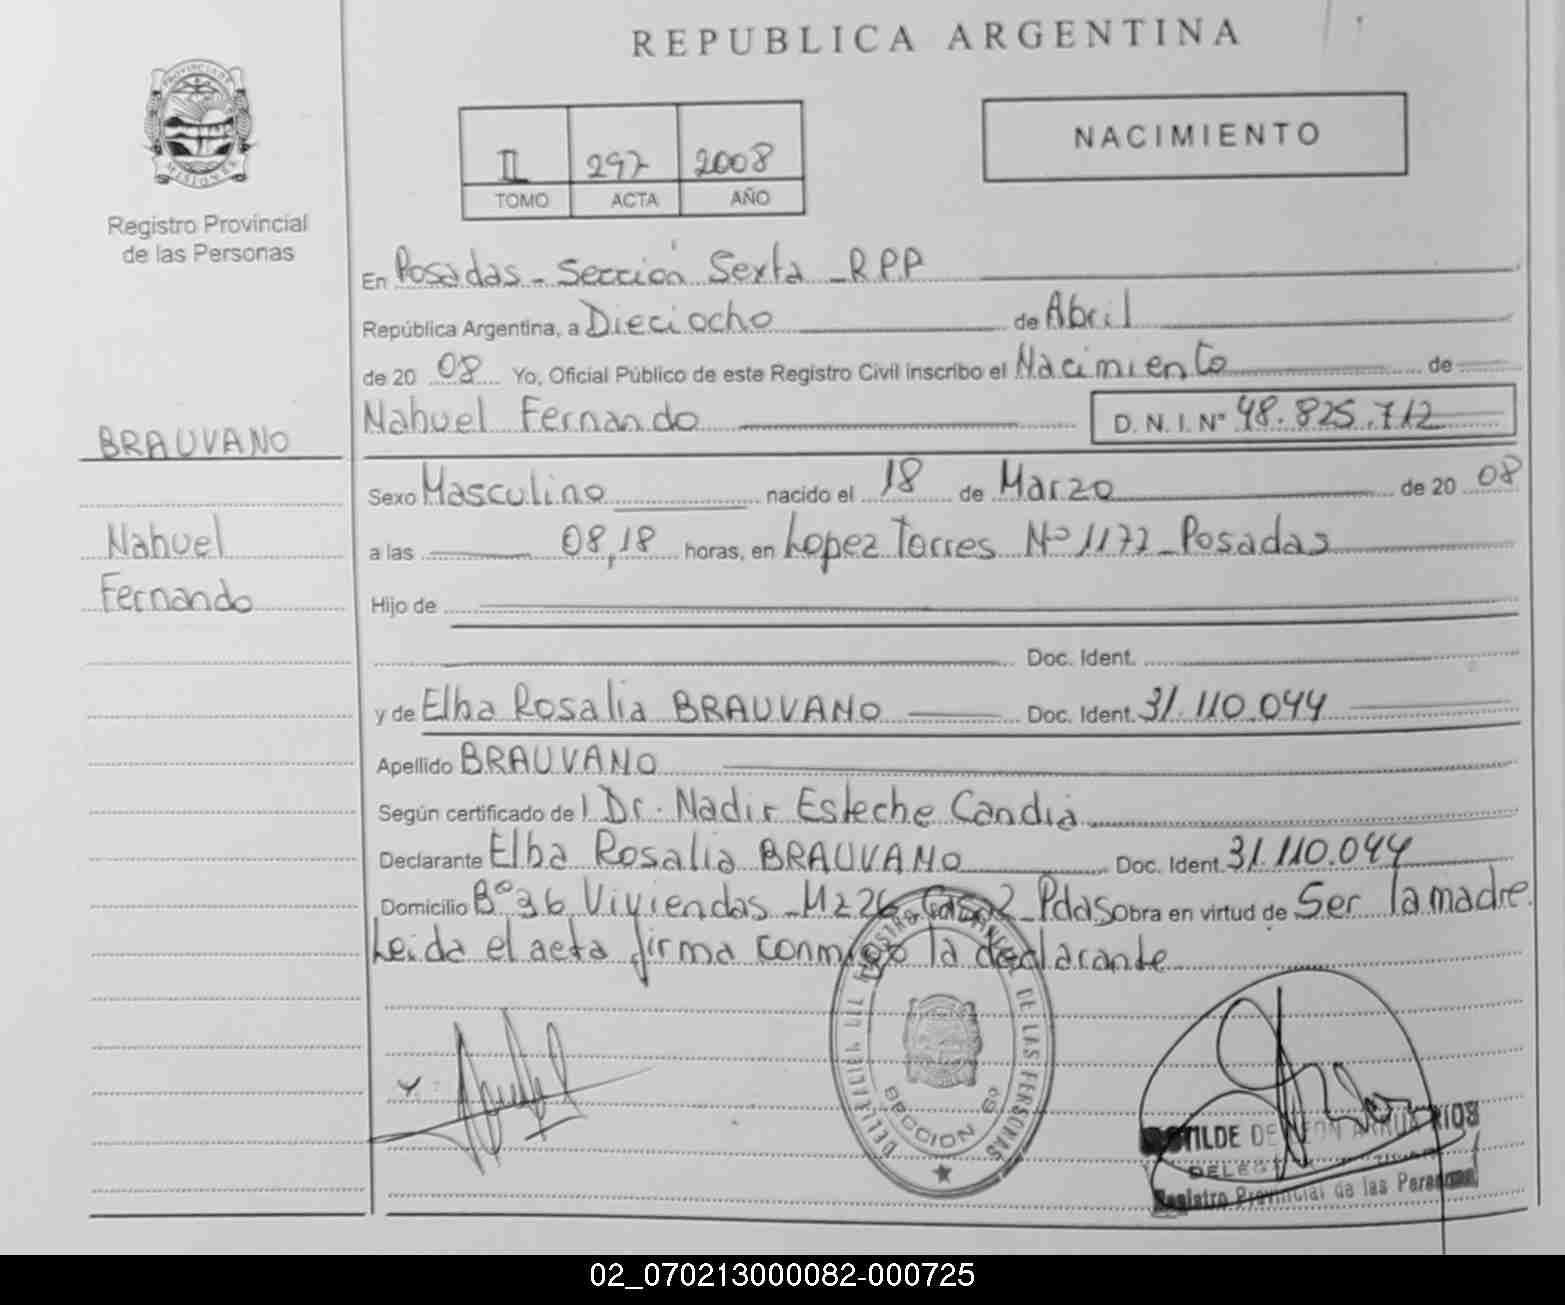 REPUBLICA ARGENTINA
PROVINCIA DE
MISIONES
Registro Provincial
de las Personas
II 297 2008
TOMO ACTA AÑO
NACIMIENTO
En Posadas - Sección Sexta - RPP
República Argentina, a Dieciocho de Abril
de 20 08 Yo, Oficial Público de este Registro Civil inscribo el Nacimiento de
Nahuel Fernando D.N.I.Nº 48.825.712
BRAUVANO
Sexo Masculino nacido el 18 de Marzo de 20 08
Nahuel
a las 08,18 horas, en Lopez Torres Nº 1172 - Posadas
Fernando
Hijo de
Doc. Ident.
y de Elba Rosalia BRAUVANO Doc. Ident. 31.110.044
Apellido BRAUVANO
Según certificado de l Dr. Nadir Esteche Candia
Declarante Elba Rosalia BRAUVANO Doc. Ident. 31.110.044
Domicilio Bº 36 Viviendas - Mz 26 Casa 2 - Pdas Obra en virtud de Ser la madre.
Leida el acta firma conmigo la declarante
DE LAS PERSONAS
SECCION 6º
DE LEON RIOS
Registro Provincial de las Personas
02_070213000082-000725